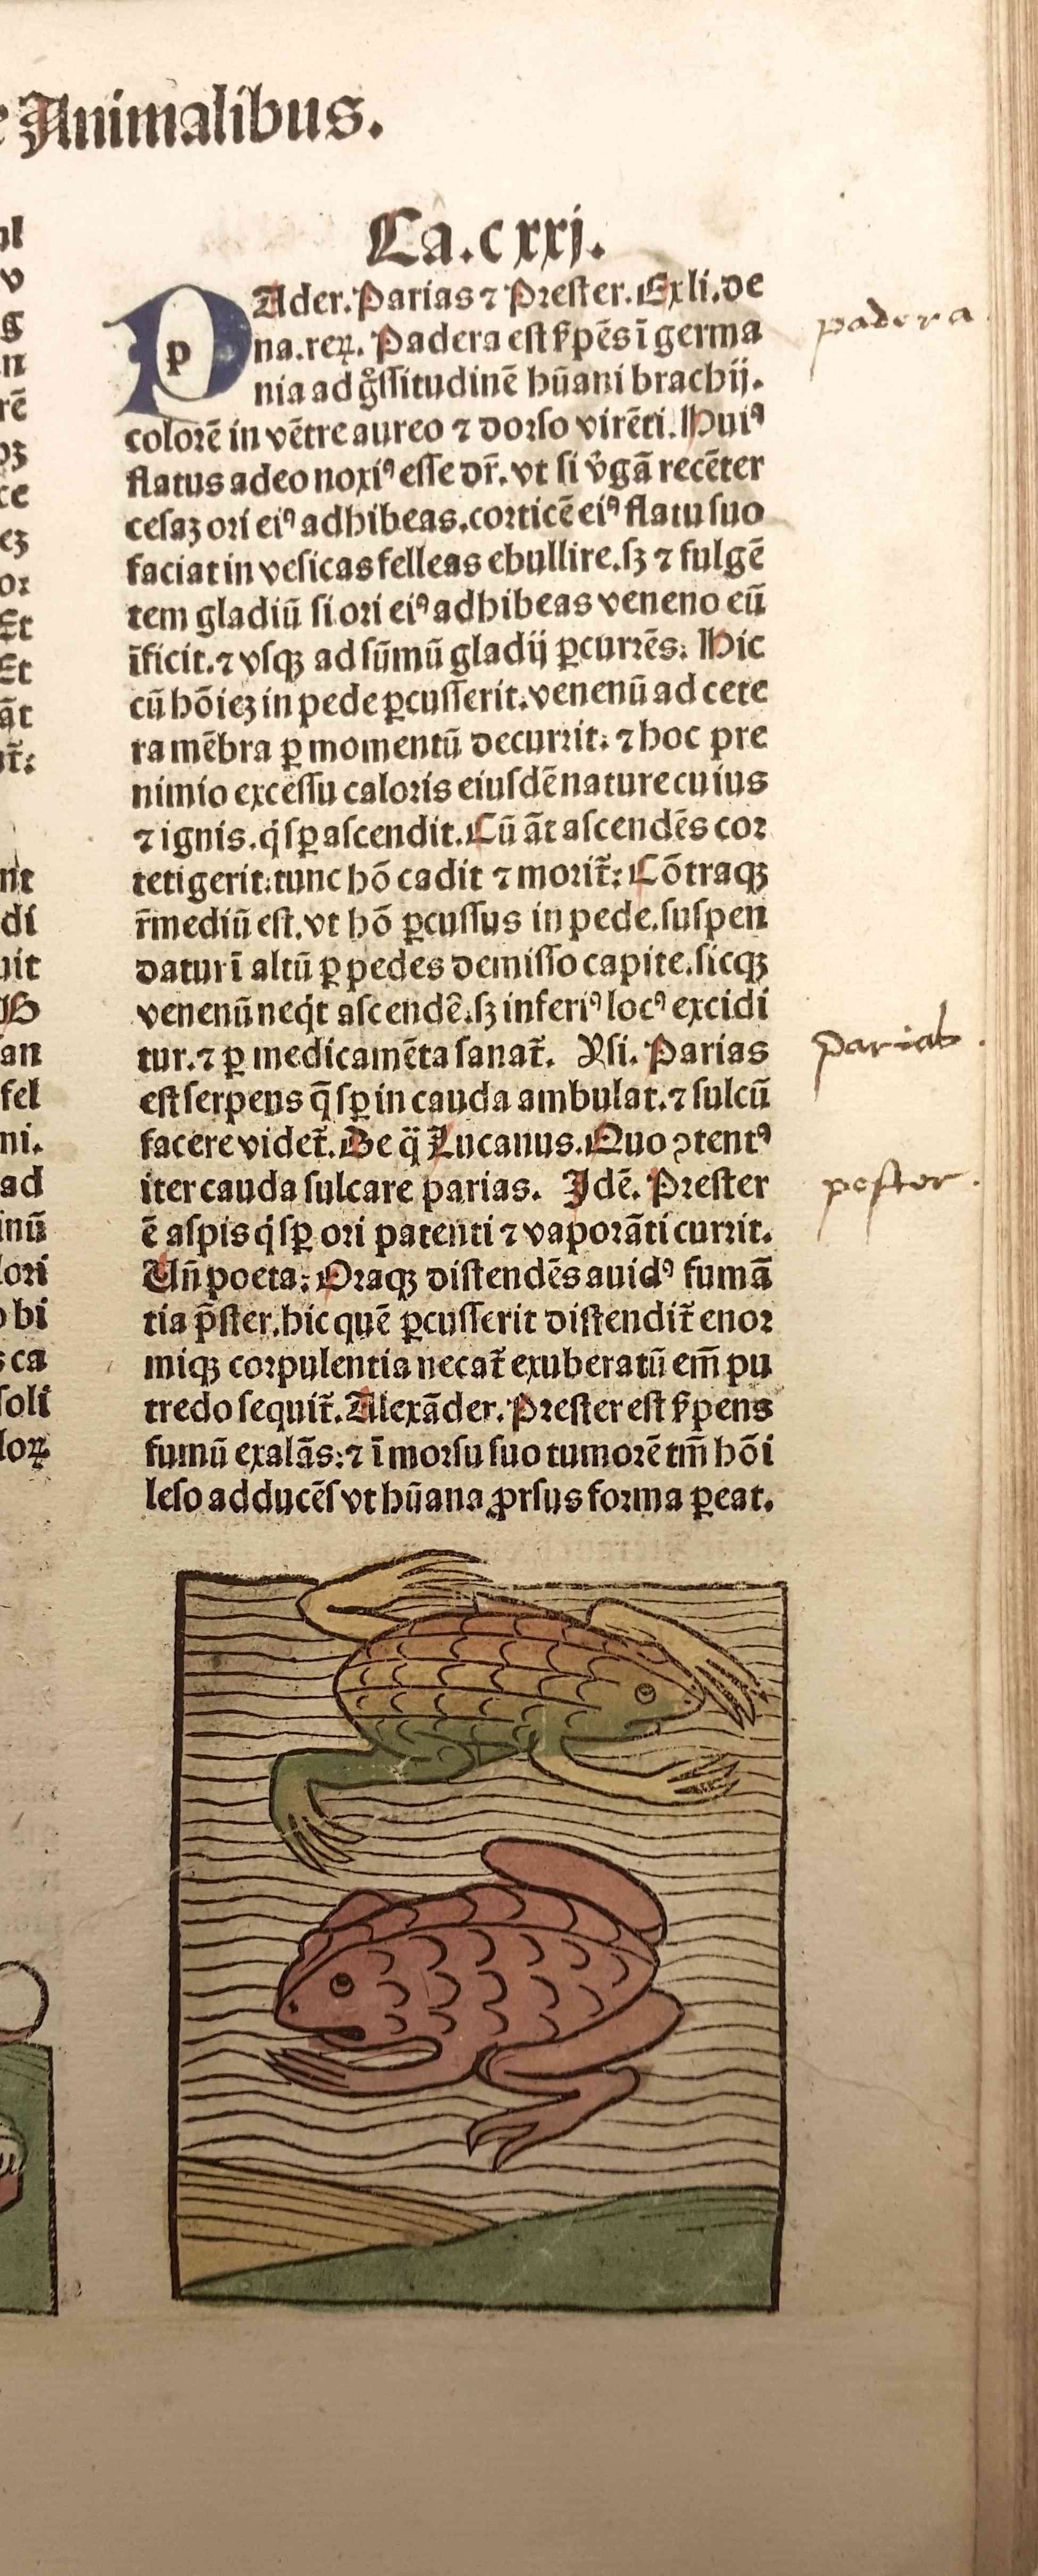 Animalibus.
Ca.cxxj.
PAder.Parias ⁊ Prester.Ex li.de
na.reꝝ. Padera est ẜpēs ī germa
nia ad gͦssitudinē hūani brachij.
colorē in vētre aureo ⁊ dorso virēti. Huiꝰ
flatus adeo noxiꝰ esse dr̄. vt si v̓gā recēter
cesaꝫ ori eiꝰ adhibeas.corticē eiꝰ flatu suo
faciat in vesicas felleas ebullire.sꝫ ⁊ fulgē
tem gladiū si ori eiꝰ adhibeas veneno eū
īficit.⁊ vsqꝫ ad sūmū gladij ꝑcurrēs. Hic
cū hōieꝫ in pede ꝑcusserit.venenū ad cete
ra mēbra ꝑ momentū decurrit. ⁊ hoc pre
nimio excessu caloris eiusdē nature cuius
⁊ ignis.q̇ sꝑ ascendit.Cū āt ascendēs cor
tetigerit.tunc hō cadit ⁊ morit̄: Cōtraqꝫ
r̄mediū est.vt hō ꝑcussus in pede.suspen
datur ī altū ꝑ pedes demisso capite.sicqꝫ
venenū neq̇t ascendē.sꝫ inferiꝰ locꝰ excidi
tur.⁊ ꝑ medicamēta sanat̄. Ysi. Parias
est serpens q̄ sꝑ in cauda ambulat.⁊ sulcū
facere videt̄.De q̈ Lucanus.Quo ꝯtentꝰ
iter cauda sulcare parias. Idē. Prester
ē aspis q̇ sꝑ ori patenti ⁊ vaporāti currit.
Vn̄ poeta: Oraqꝫ distendēs auidꝰ fumā
tia p̄ster.hic quē ꝑcusserit distendit̄ enor
miqꝫ corpulentia necat̄ exuberatū em̄ pu
tredo sequit̄.Alexāder.Prester est ẜpens
fumū exalās:⁊ ī morsu suo tumorē tm̄ hōi
leso adducēs vt hūana ꝓrsus forma ꝑeat.
padera.
parias.
pester.